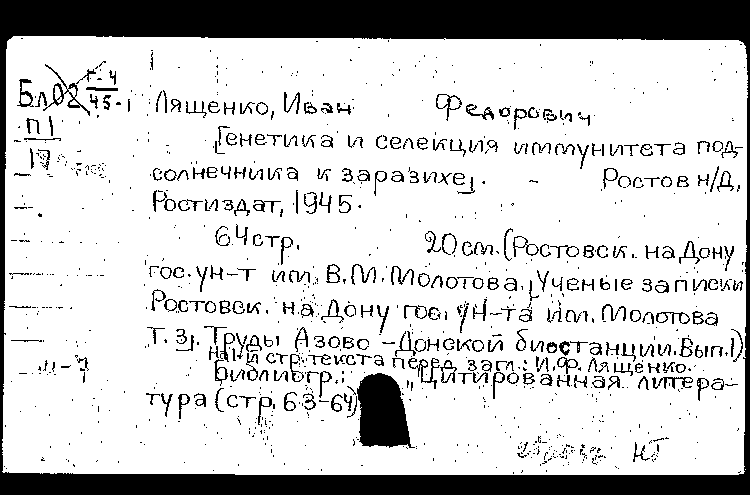 Бл02 Г-4
45-1
П1
Лященко, Иван Федорович
[Генетика и селекция иммунитета под-
солнечника к заразихе]. - Ростов н/Д,
Ростиздат, 1945.
64 стр. 20 см. (Ростовск. на Дону
гос. ун-т им. В.М. Молотова. [Ученые записки
Ростовск. на Дону гос. ун-та им. Молотова
Т. 3]. Труды Азово-Донской биостанции. Вып.1)
На 1й стр. текста перед загл.: И.Ф. Лященко.
Библиогр.: "Цитированная литера-
тура (стр. 63-64)
м-7
НГ